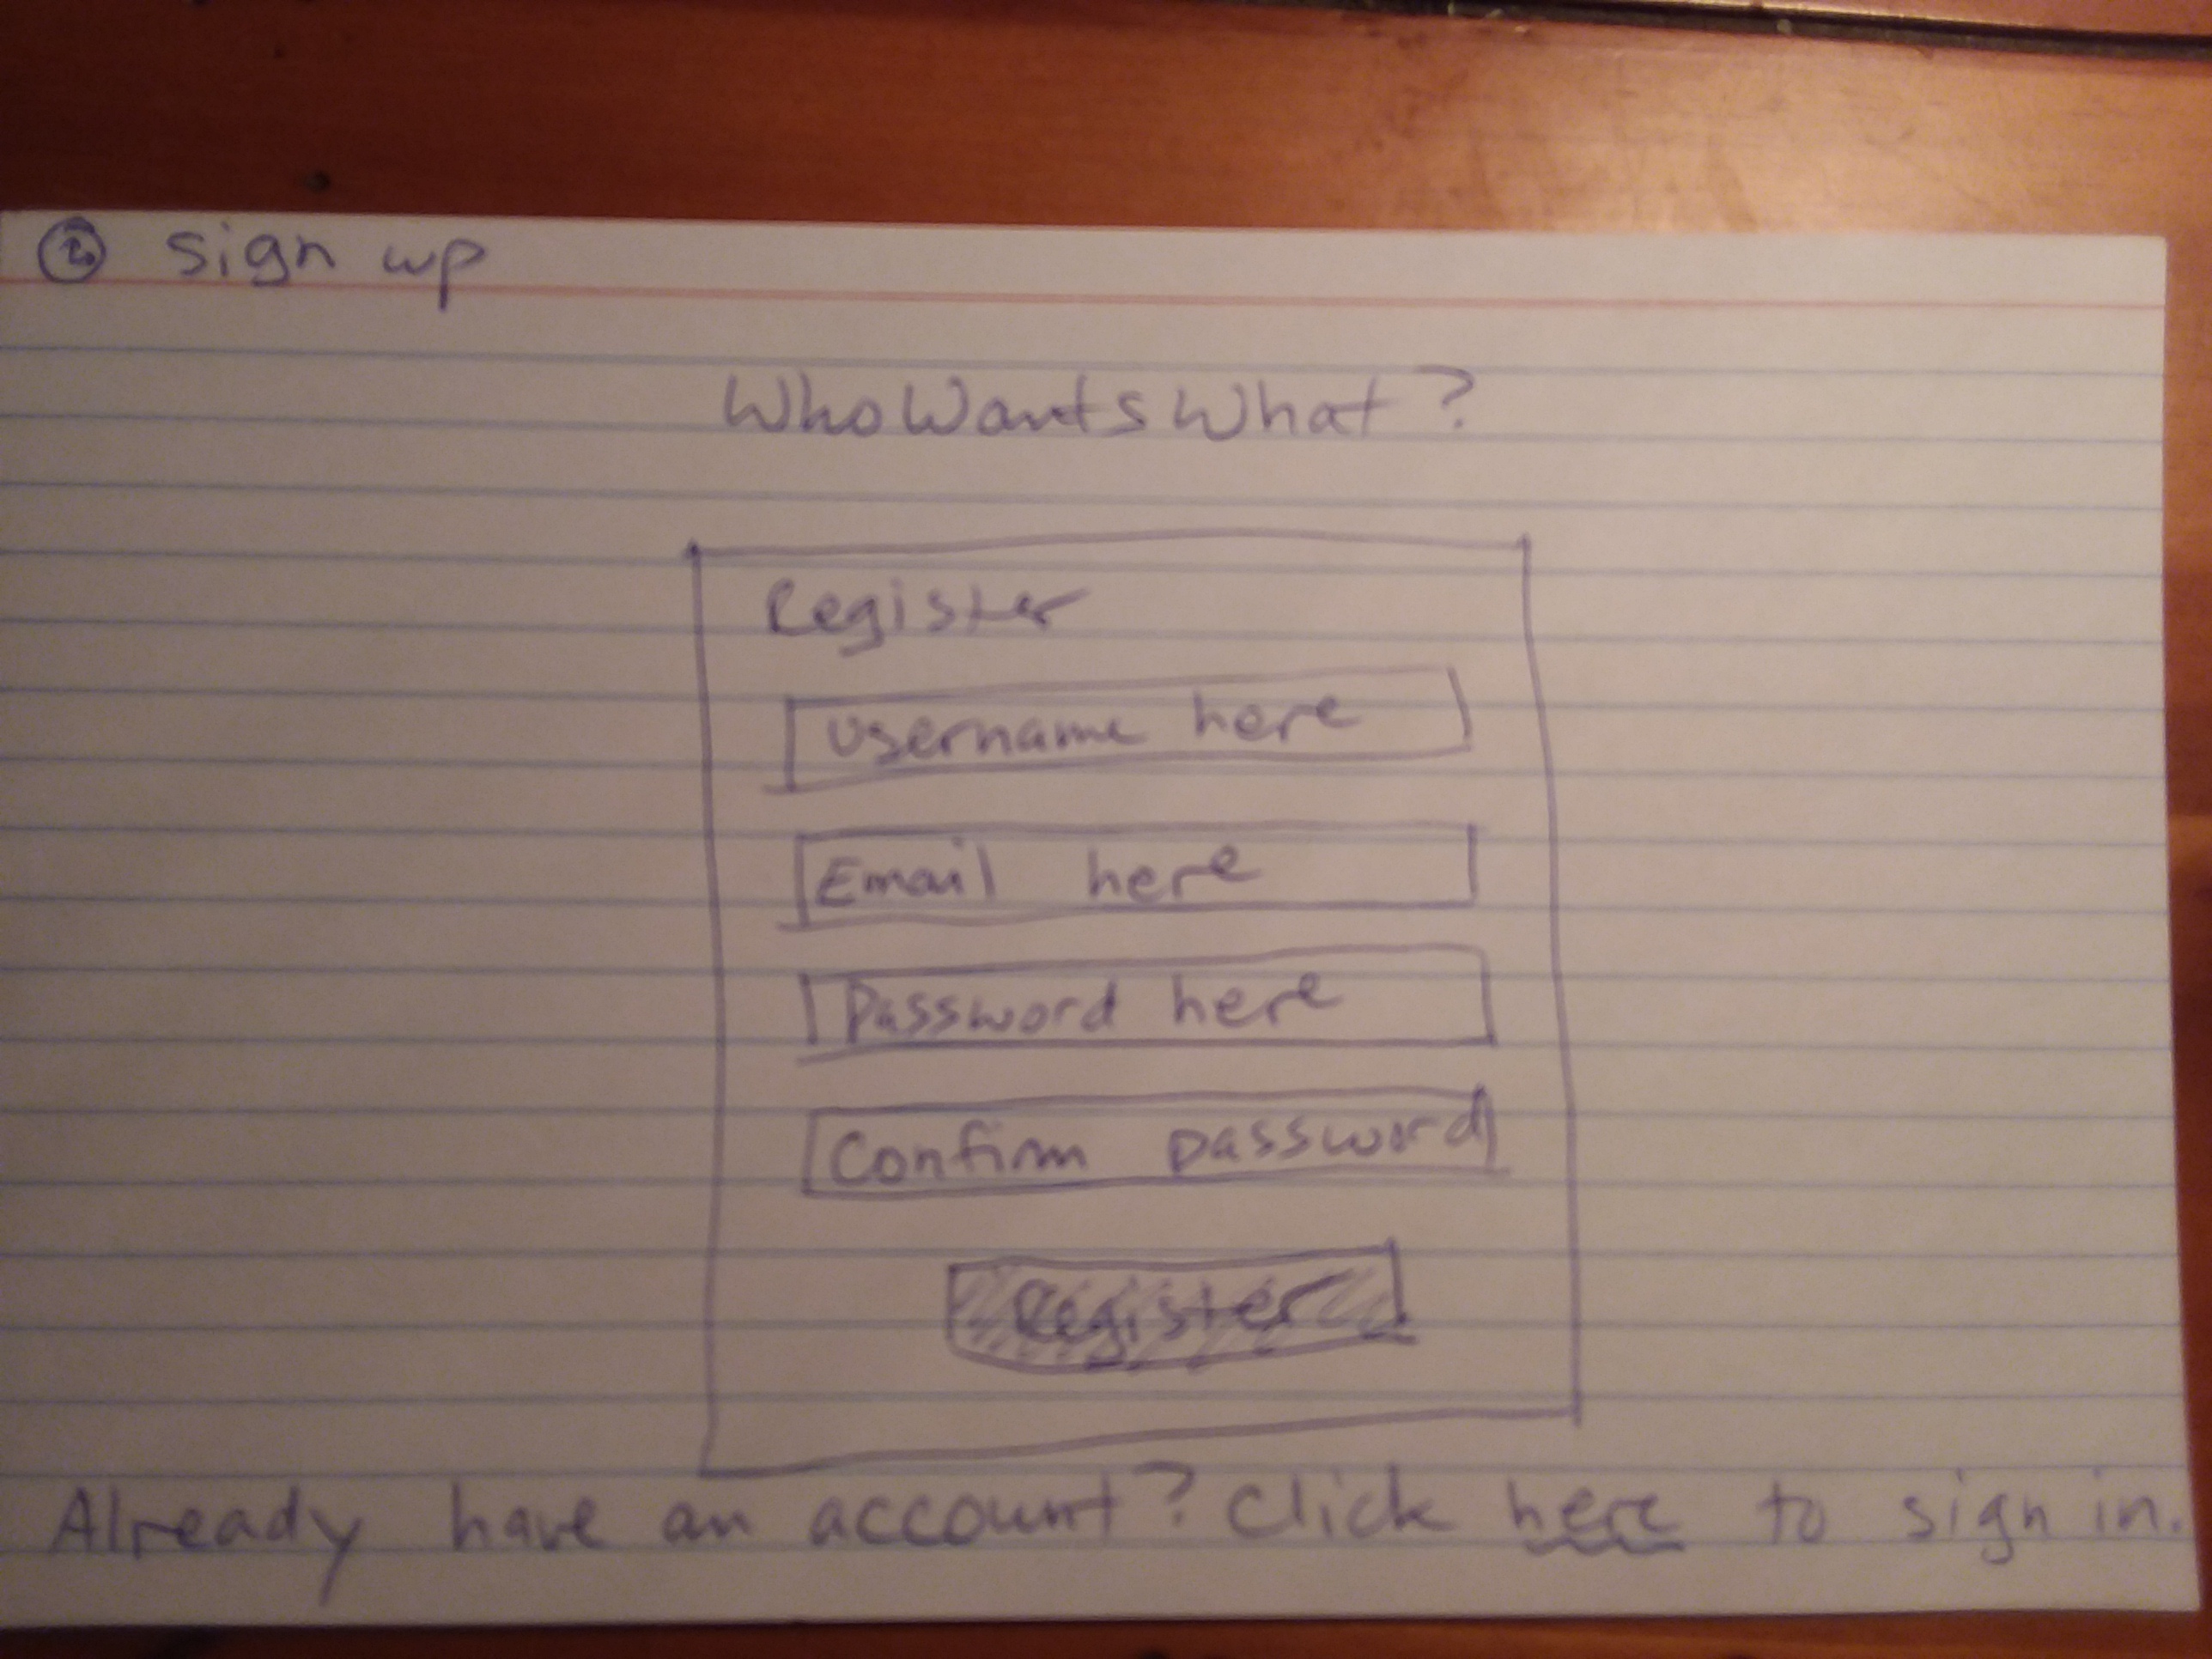 ② Sign up
WhoWantsWhat?
Register
Username here
Email here
Password here
Confirm password
Register
Already have an account? Click here to sign in.